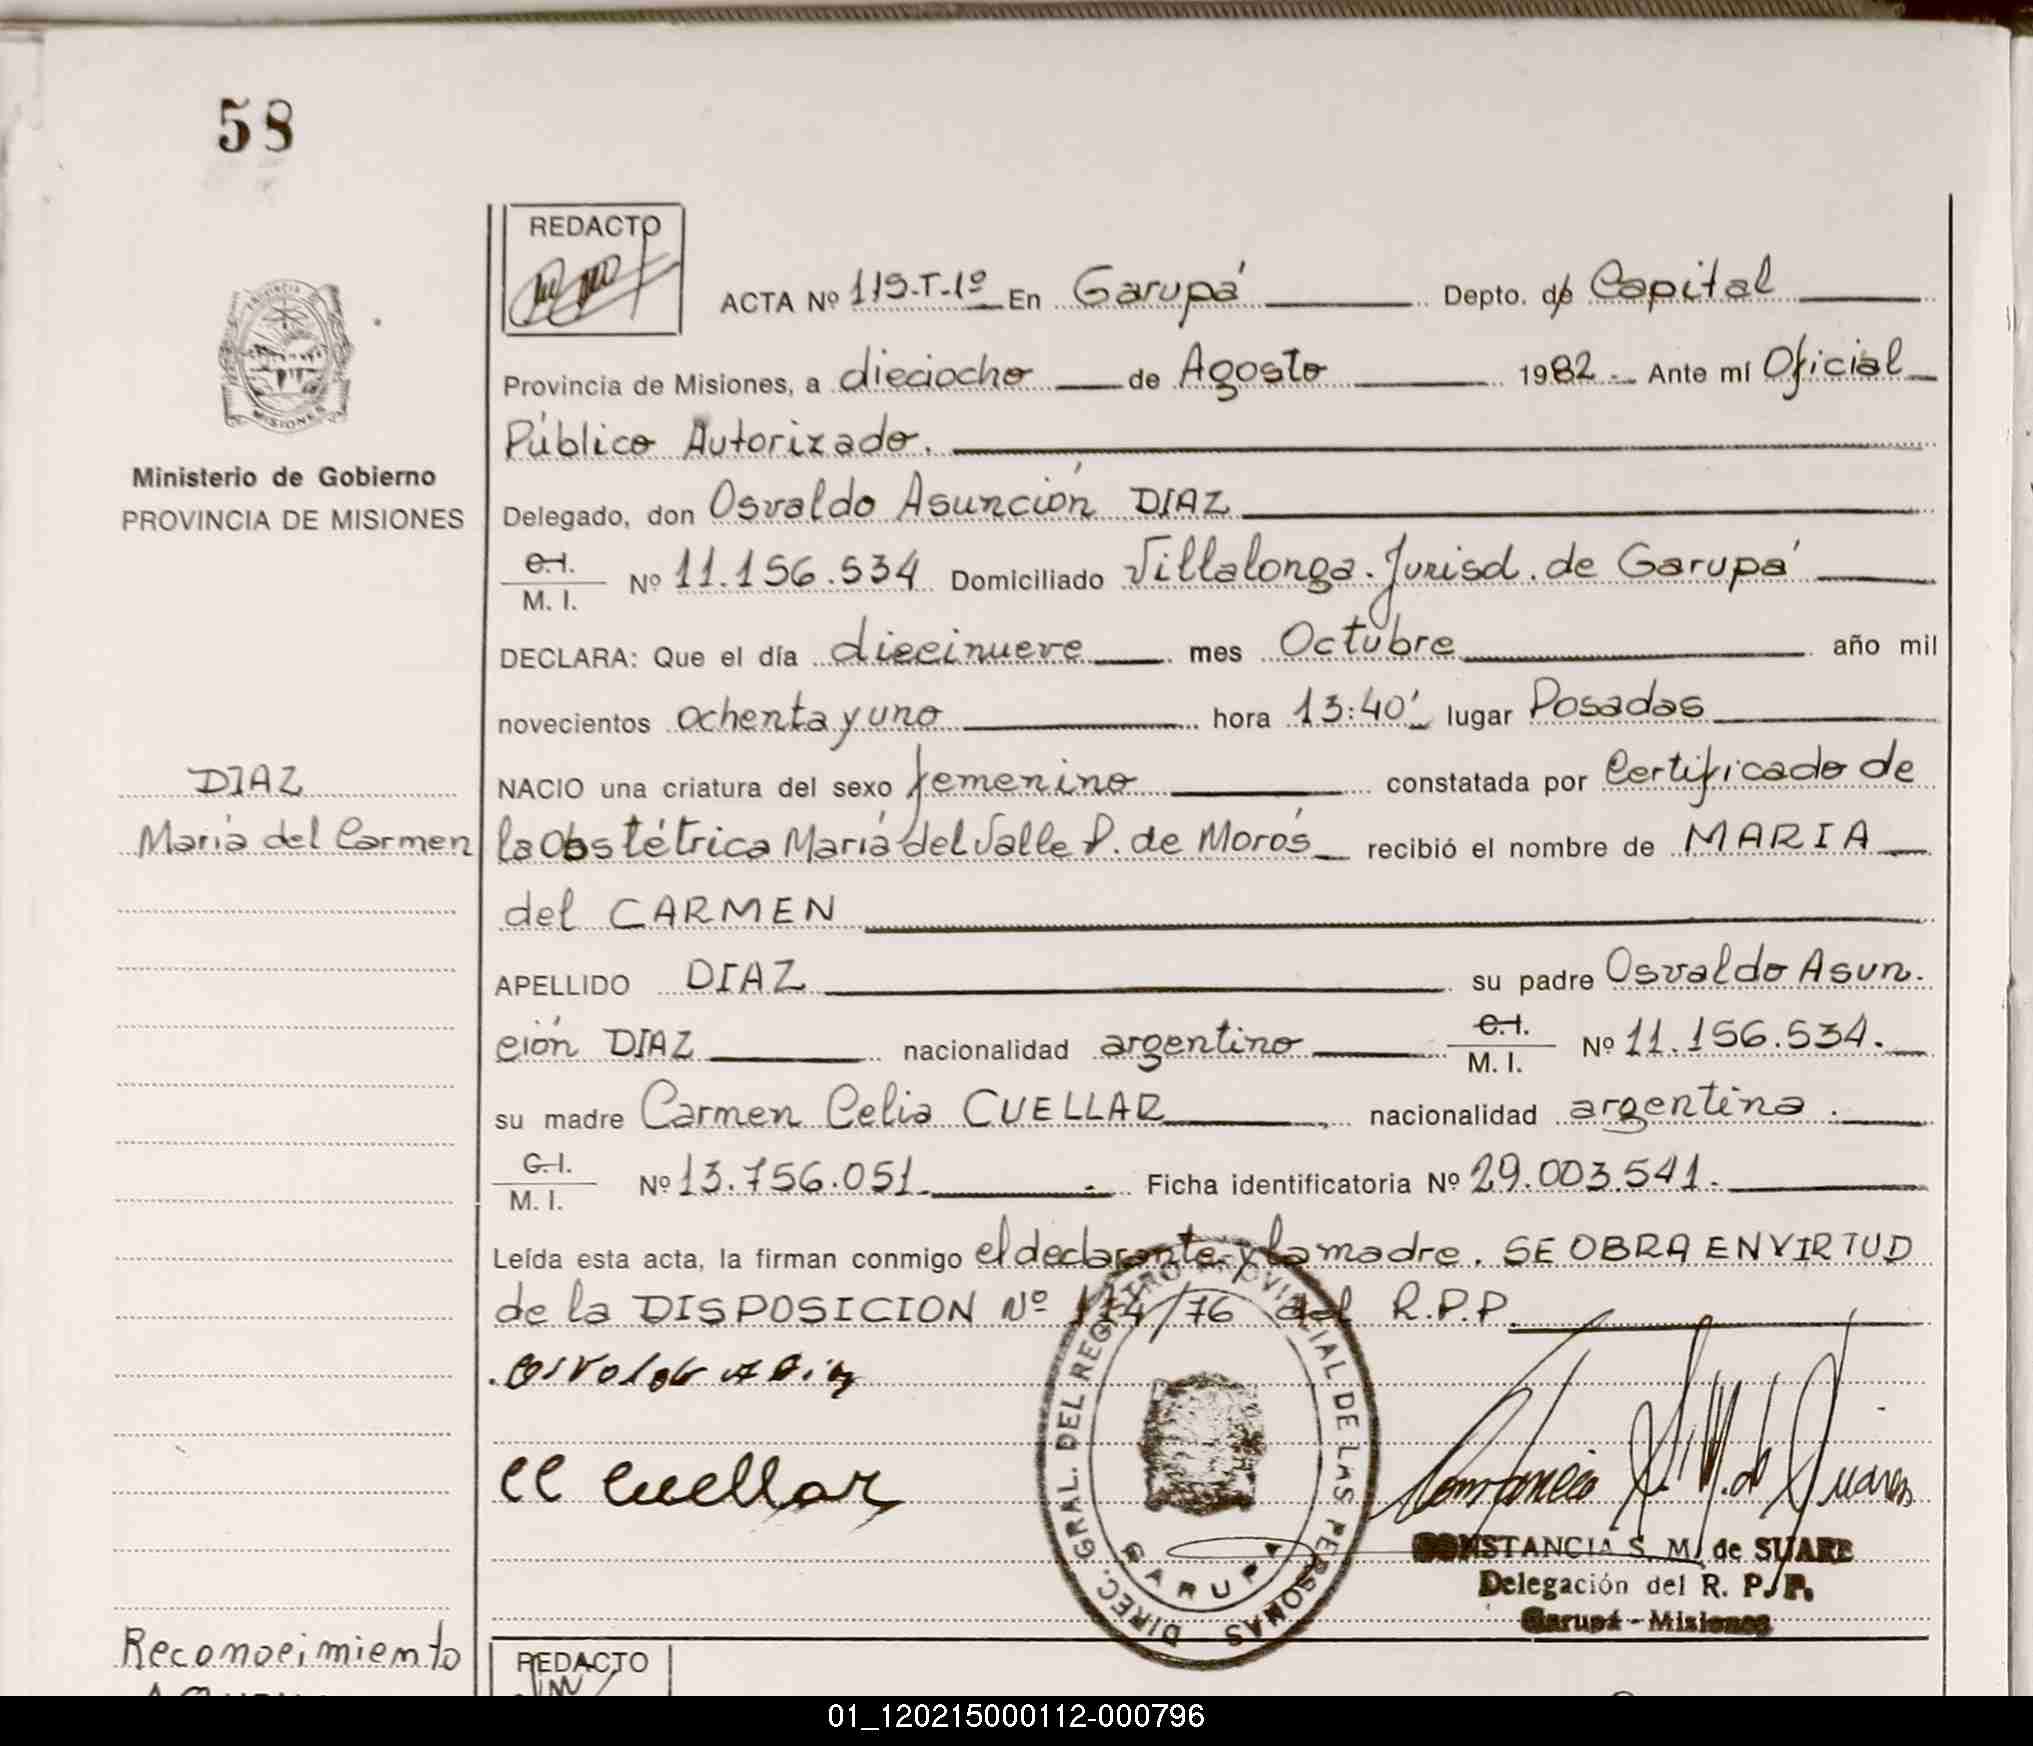 58
REDACTO
ACTA Nº 119-T-1º En Garupá Depto. de Capital
Provincia de Misiones, a dieciocho de Agosto 1982.- Ante mí Oficial
Público Autorizado.
Ministerio de Gobierno
PROVINCIA DE MISIONES
Delegado, don Osvaldo Asunción DIAZ
C.I.
M. I. Nº 11.156.534 Domiciliado Villalonga. Jurisd. de Garupá
DECLARA: Que el día diecinueve mes Octubre año mil
novecientos ochenta y uno hora 13:40' lugar Posadas
DIAZ
María del Carmen
NACIO una criatura del sexo femenino constatada por Certificado de
la Obstétrica María del Valle P. de Morós recibió el nombre de MARIA
del CARMEN
APELLIDO DIAZ su padre Osvaldo Asun.
ción DIAZ nacionalidad argentino C.I.
M. I. Nº 11.156.534.
su madre Carmen Celia CUELLAR nacionalidad argentina.
C.I.
M. I. Nº 13.756.051. Ficha identificatoria Nº 29.003.541.
Leída esta acta, la firman conmigo el declarante y la madre. SE OBRA EN VIRTUD
de la DISPOSICION Nº 114/76 del R.P.P.
Osvaldo A Diaz
CC Cuellar
DIREC. GRAL. DEL REGISTRO PROVINCIAL DE LAS PERSONAS
GARUPA
Constancia S. M. de Suarez
CONSTANCIA S. M. de SUARE
Delegación del R. P. P.
Garupá - Misiones
Reconocimiento
REDACTO
01_120215000112-000796